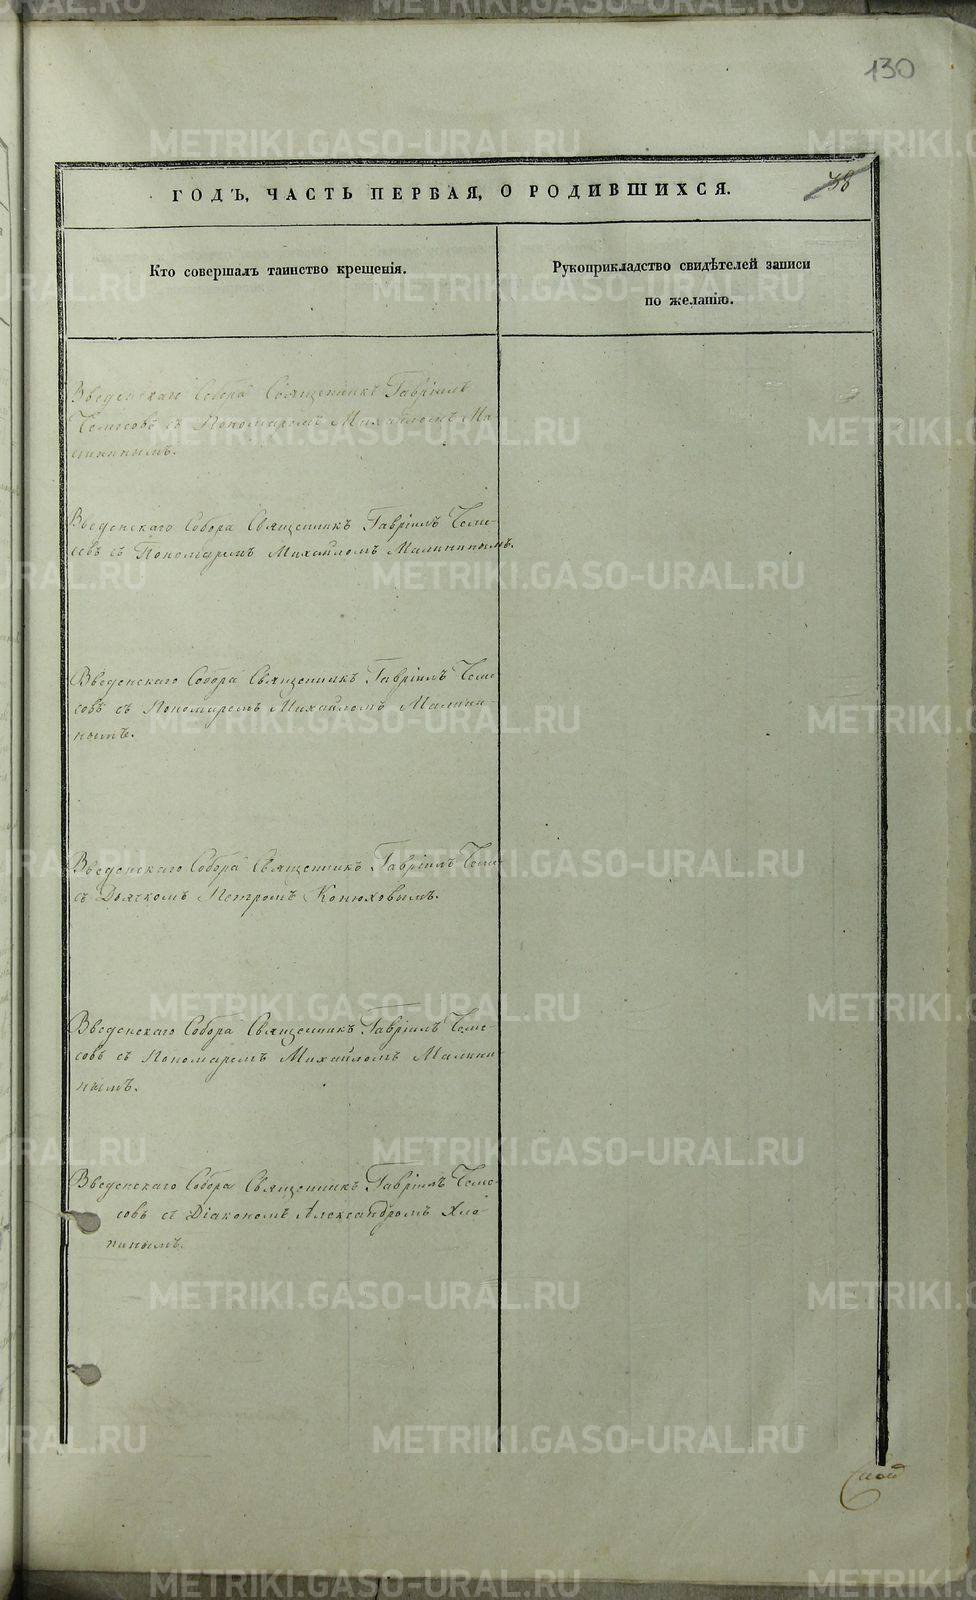 130
ГОДЪ, ЧАСТЬ ПЕРВАЯ, О РОДИВШИХСЯ.
38
Кто совершалъ таинство крещенія.
Рукоприкладство свидѣтелей записи
по желанію.
Введенскаго Собора Священникъ Гавріилъ
Чемесовъ съ Пономаремъ Михайломъ Ма
лининымъ.
Введенскаго Собора Священникъ Гавріилъ Чеме-
совъ съ Пономаремъ Михайломъ Малининымъ.
Введенскаго Собора Священникъ Гавріилъ Чеме
совъ съ Пономаремъ Михайломъ Малини-
нымъ.
Введенскаго Собора Священникъ Гавріилъ
съ Дьячкомъ Петромъ Конюховымъ.
Введенскаго Собора Священникъ Гавріилъ Чеме-
совъ съ Пономаремъ Михайломъ Малини
нымъ.
Введенскаго Собора Священникъ Гавріилъ Чеме-
совъ съ Діакономъ Александромъ
METRIKI.GASO-URAL.RU